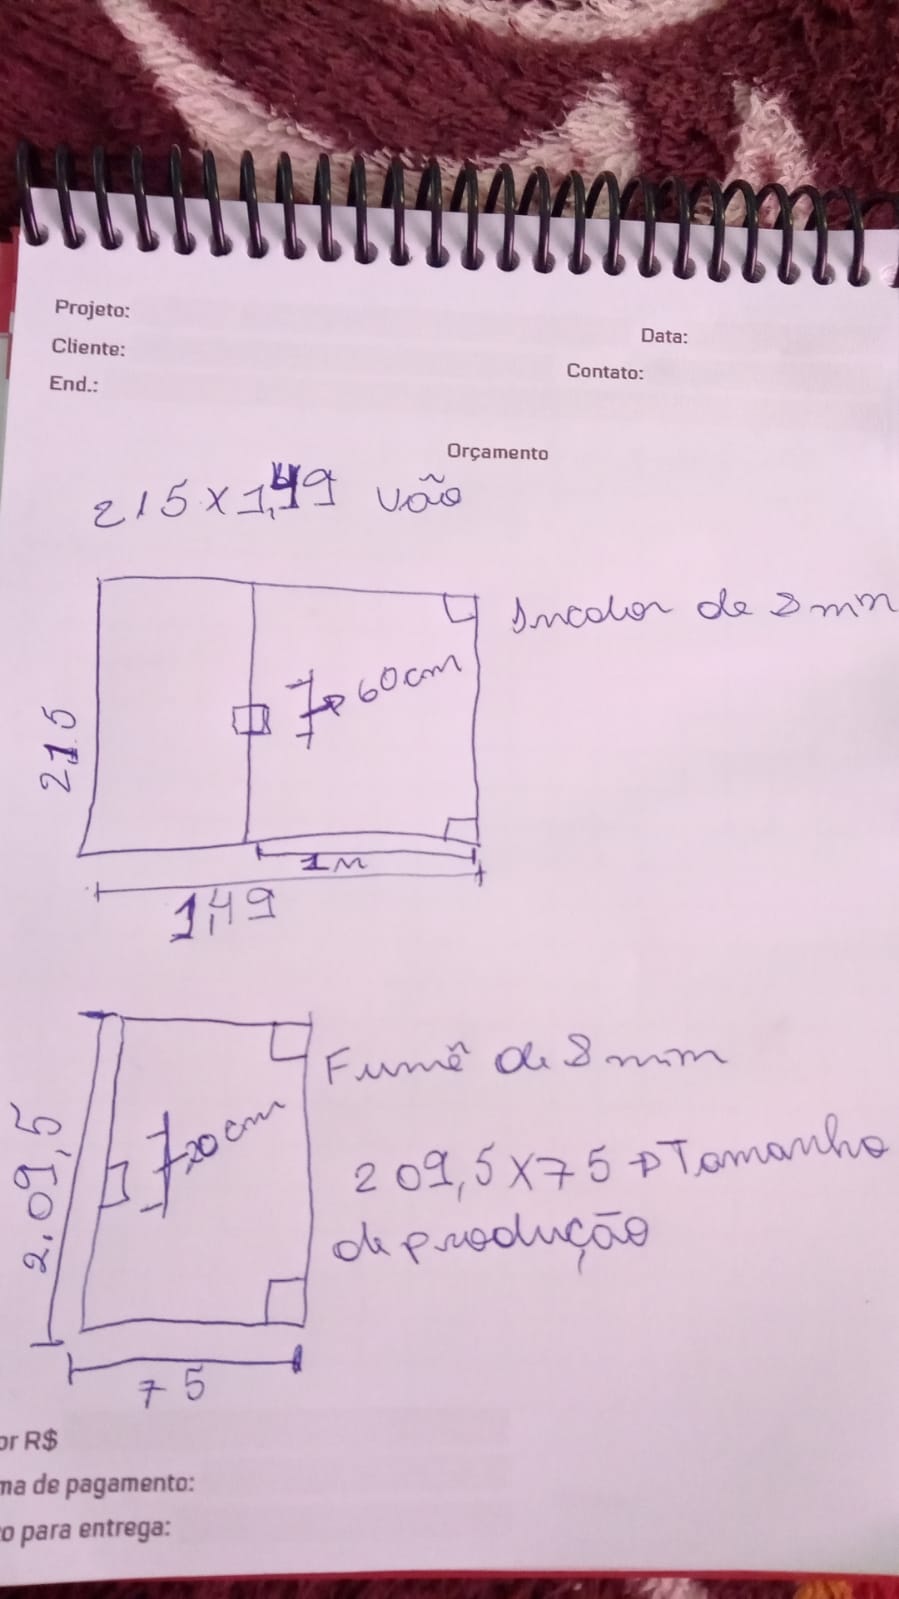 Projeto:
Data:
Cliente:
Contato:
End.:
Orçamento
215 x 1,49 vão
Incolor de 8mm
60cm
215
1m
1,49
Fumê de 8mm
20cm
2.09,5
209,5X75 → Tamanho
de produção
75
or R$
ma de pagamento:
o para entrega: